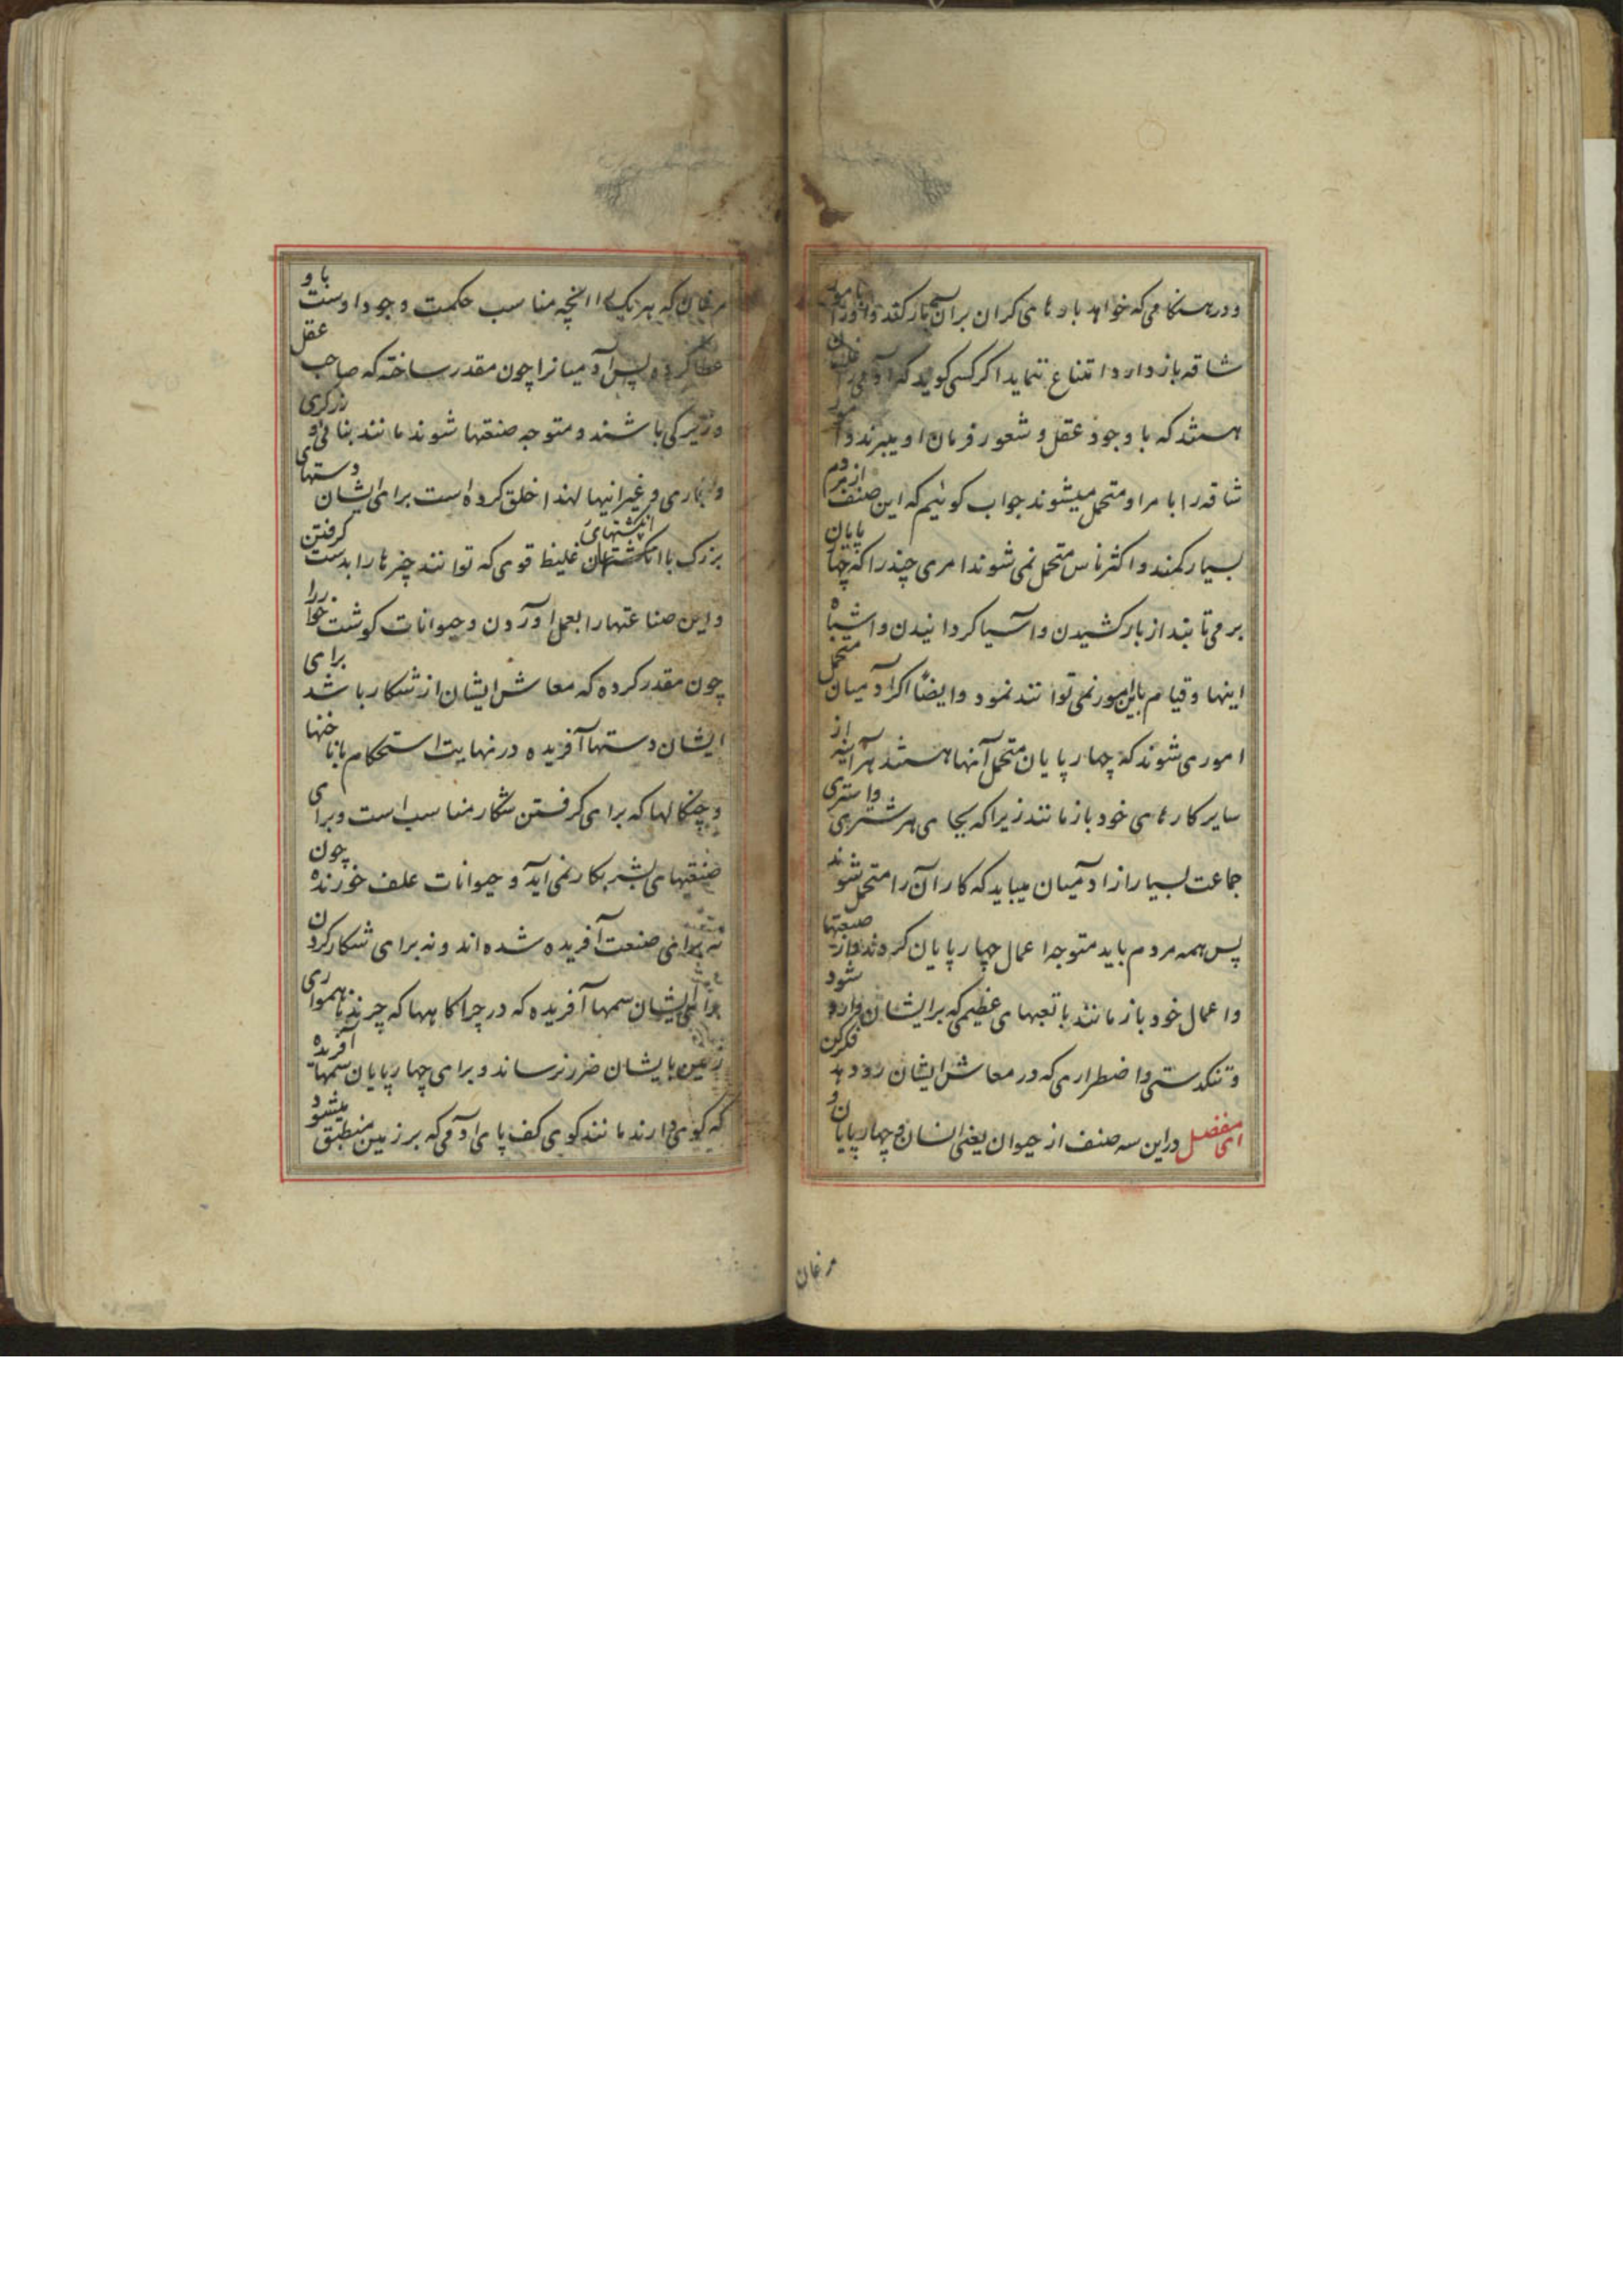 ودر هنگامی که خواهد بارهای گران بر آن بار کند و او را
شاقه باز دارد امتناع ننماید اگر کسی گوید که آدمی را غلامان
هستند که با وجود عقل و شعور فرمان او میبرند و
شاقه را با مر او متحمل میشوند جواب گوئیم که این صنف از مردم
بسیار کمند و اکثر ناس متحمل نمی شوند امری چند را که چهارپایان
بر می تابند از بار کشیدن و آسیا گردانیدن و اشباه
اینها و قیام باین امور نمی توانند نمود و ایضا اگر آدمیان متحمل
اموری شوند که چهارپایان متحمل آنها هستند هرآینه از
سایر کارهای خود باز مانند زیرا که بجای هر شتری و استری
جماعت بسیار از آدمیان میباید که کار آن را متحمل شوند
پس همه مردم باید متوجه اعمال چهارپایان گردند و از صنعتها
و اعمال خود باز مانند با تعبهای عظیمی که بر ایشان وارد شود
و تنگدستی و اضطراری که در معاش ایشان رو دهد فکر کن
ای مفضل در این سه صنف از حیوان یعنی انسان و چهارپایان و
مرغان
مرغان که هر یک را آنچه مناسب حکمت وجود اوست باو
عطا کرده پس آدمیانرا چون مقدر ساخته که صاحب عقل
و زیرکی باشند و متوجه صنعتها شوند مانند بنائی و زرگری
و نجاری و غیر اینها لهذا خلق کرده است برای ایشان دستهای
بزرگ با انگشتهای غلیظ قوی که توانند چیزها را بدست گرفتن
و این صناعتها را بعمل آوردن و حیوانات گوشت خوار را
چون مقدر کرده که معاش ایشان از شکار باشد برای
ایشان دستها آفریده در نهایت استحکام با ناخنها
و چنگالها که برای گرفتن شکار مناسب است و برای
صنعتهای بشر بکار نمی آید و حیوانات علف خورنده چون
نه برای صنعت آفریده شده اند و نه برای شکار کردن
برای ایشان سمها آفریده که در چراگاهها که چرند ناهمواری
زمین بایشان ضرر نرساند و برای چهارپایان سمها آفریده
که گوی دارند مانند گوی کف پای آدمی که بر زمین منطبق میشود